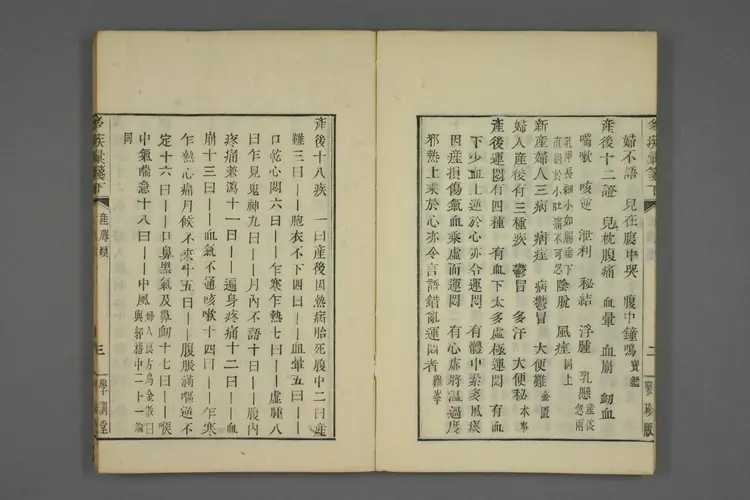 婦不語　兒在腹中哭　腹中鐘鳴寶鑑
產後十二證　兒枕腹痛　血暈　血崩　衂血
喘嗽　咳逆　泄利　秘結　浮腫　乳懸產後忽兩
乳伸長細小如腸垂下直過於小肚痛不可忍陰脫　風痙同上
新產婦人三病　病痙　病鬱冒　大便難金匱
婦人產後有三種疾　鬱冒　多汗　大便秘本事
產後運悶有四種　有血下太多虛極運悶　有血
下少血上逆於心亦令運悶　有體中素多風痰
因產損傷氣血乘虛而運悶　有心虛將溫過度
邪熱上乘於心亦令言語錯亂運悶者雞峯
產後十八疾　一曰產後因熱病胎死腹中二曰產
難三曰——胞衣不下四曰——血暈五曰——
口乾心悶六曰——乍寒乍熱七曰——虛腫八
曰乍見鬼神九曰——月內不語十曰——腹內
疼痛兼瀉十一曰——遍身疼痛十二曰——血
崩十三曰——血氣不通咳嗽十四曰——乍寒
乍熱心痛月候不來十五曰——腹脹滿嘔逆不
定十六曰——口鼻黑氣及鼻衂十七曰——喉
中氣喘急十八曰——中風婦人良方烏金散曰與郭稽中二十一論
同
產薦類
三
學訓堂